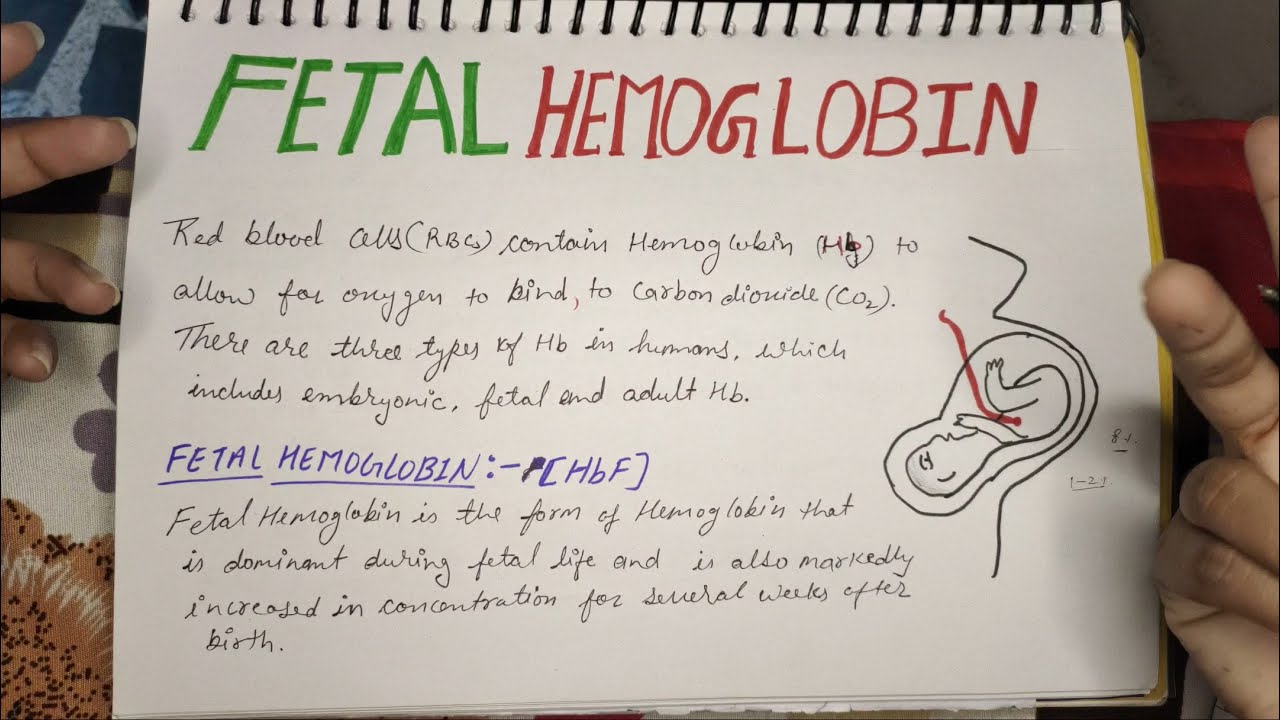 FETAL HEMOGLOBIN
Red blood cells (RBCs) contain Hemoglobin (Hb) to
allow for oxygen to bind, to carbon dioxide (CO2).
There are three types of Hb in humans, which
includes embryonic, fetal and adult Hb.
FETAL HEMOGLOBIN :- [HbF]
Fetal Hemoglobin is the form of Hemoglobin that
is dominant during fetal life and is also markedly
increased in concentration for several weeks after
birth.